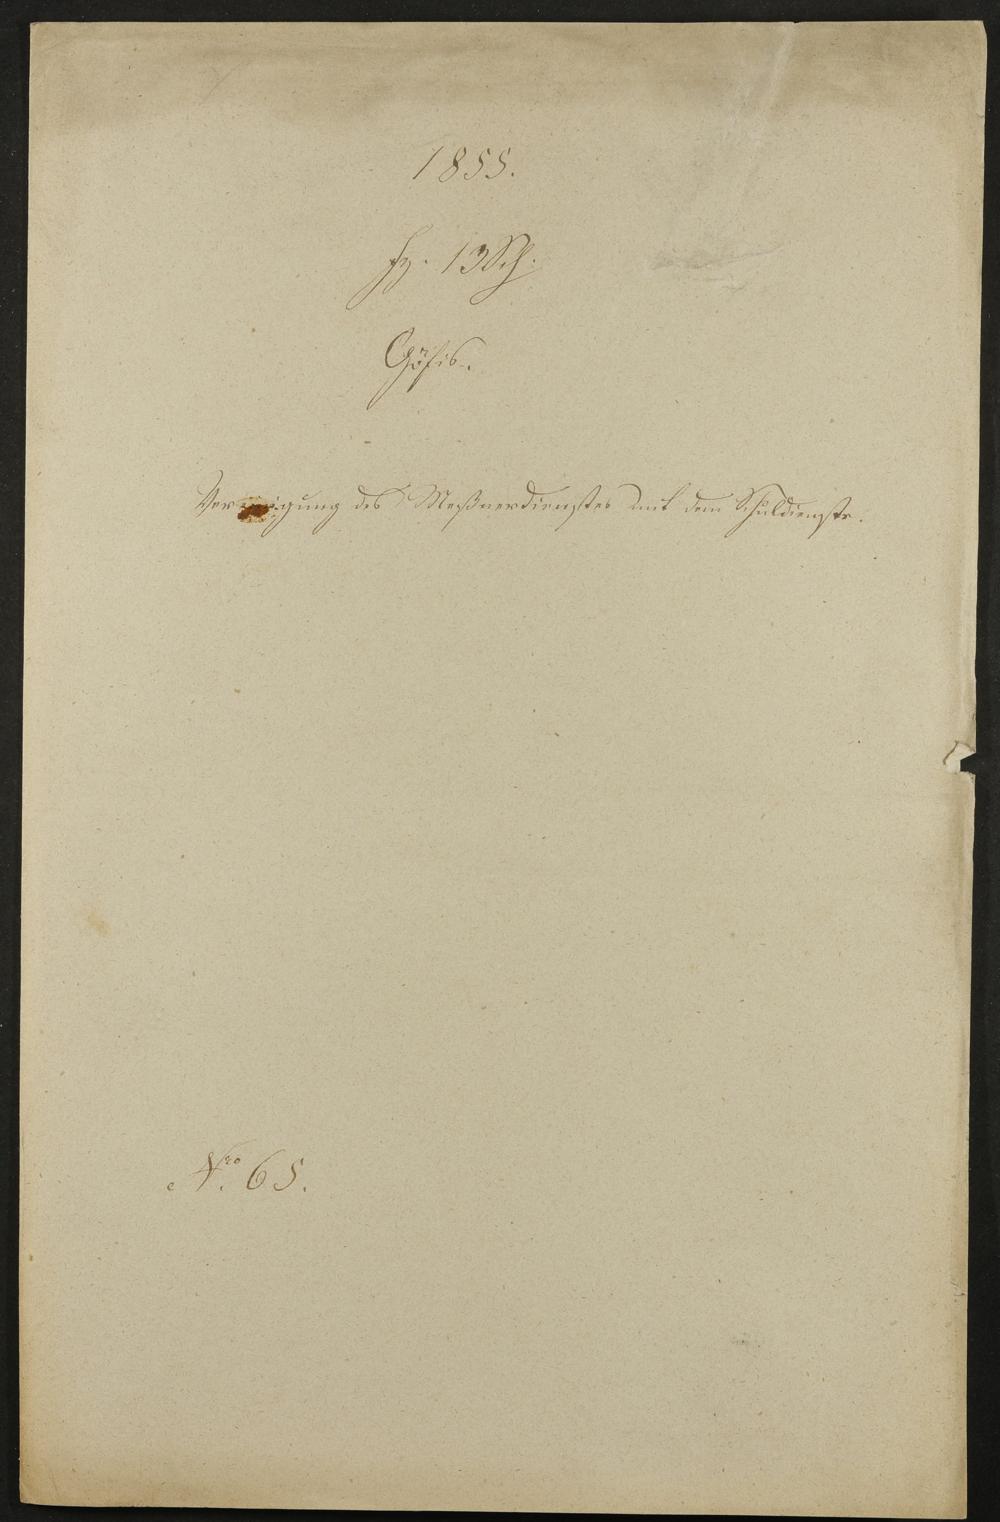 1855.
13 Sch.
Göfis.
Vereinigung des Meßnerdienstes mit dem Schuldienste.
Nro. 65.